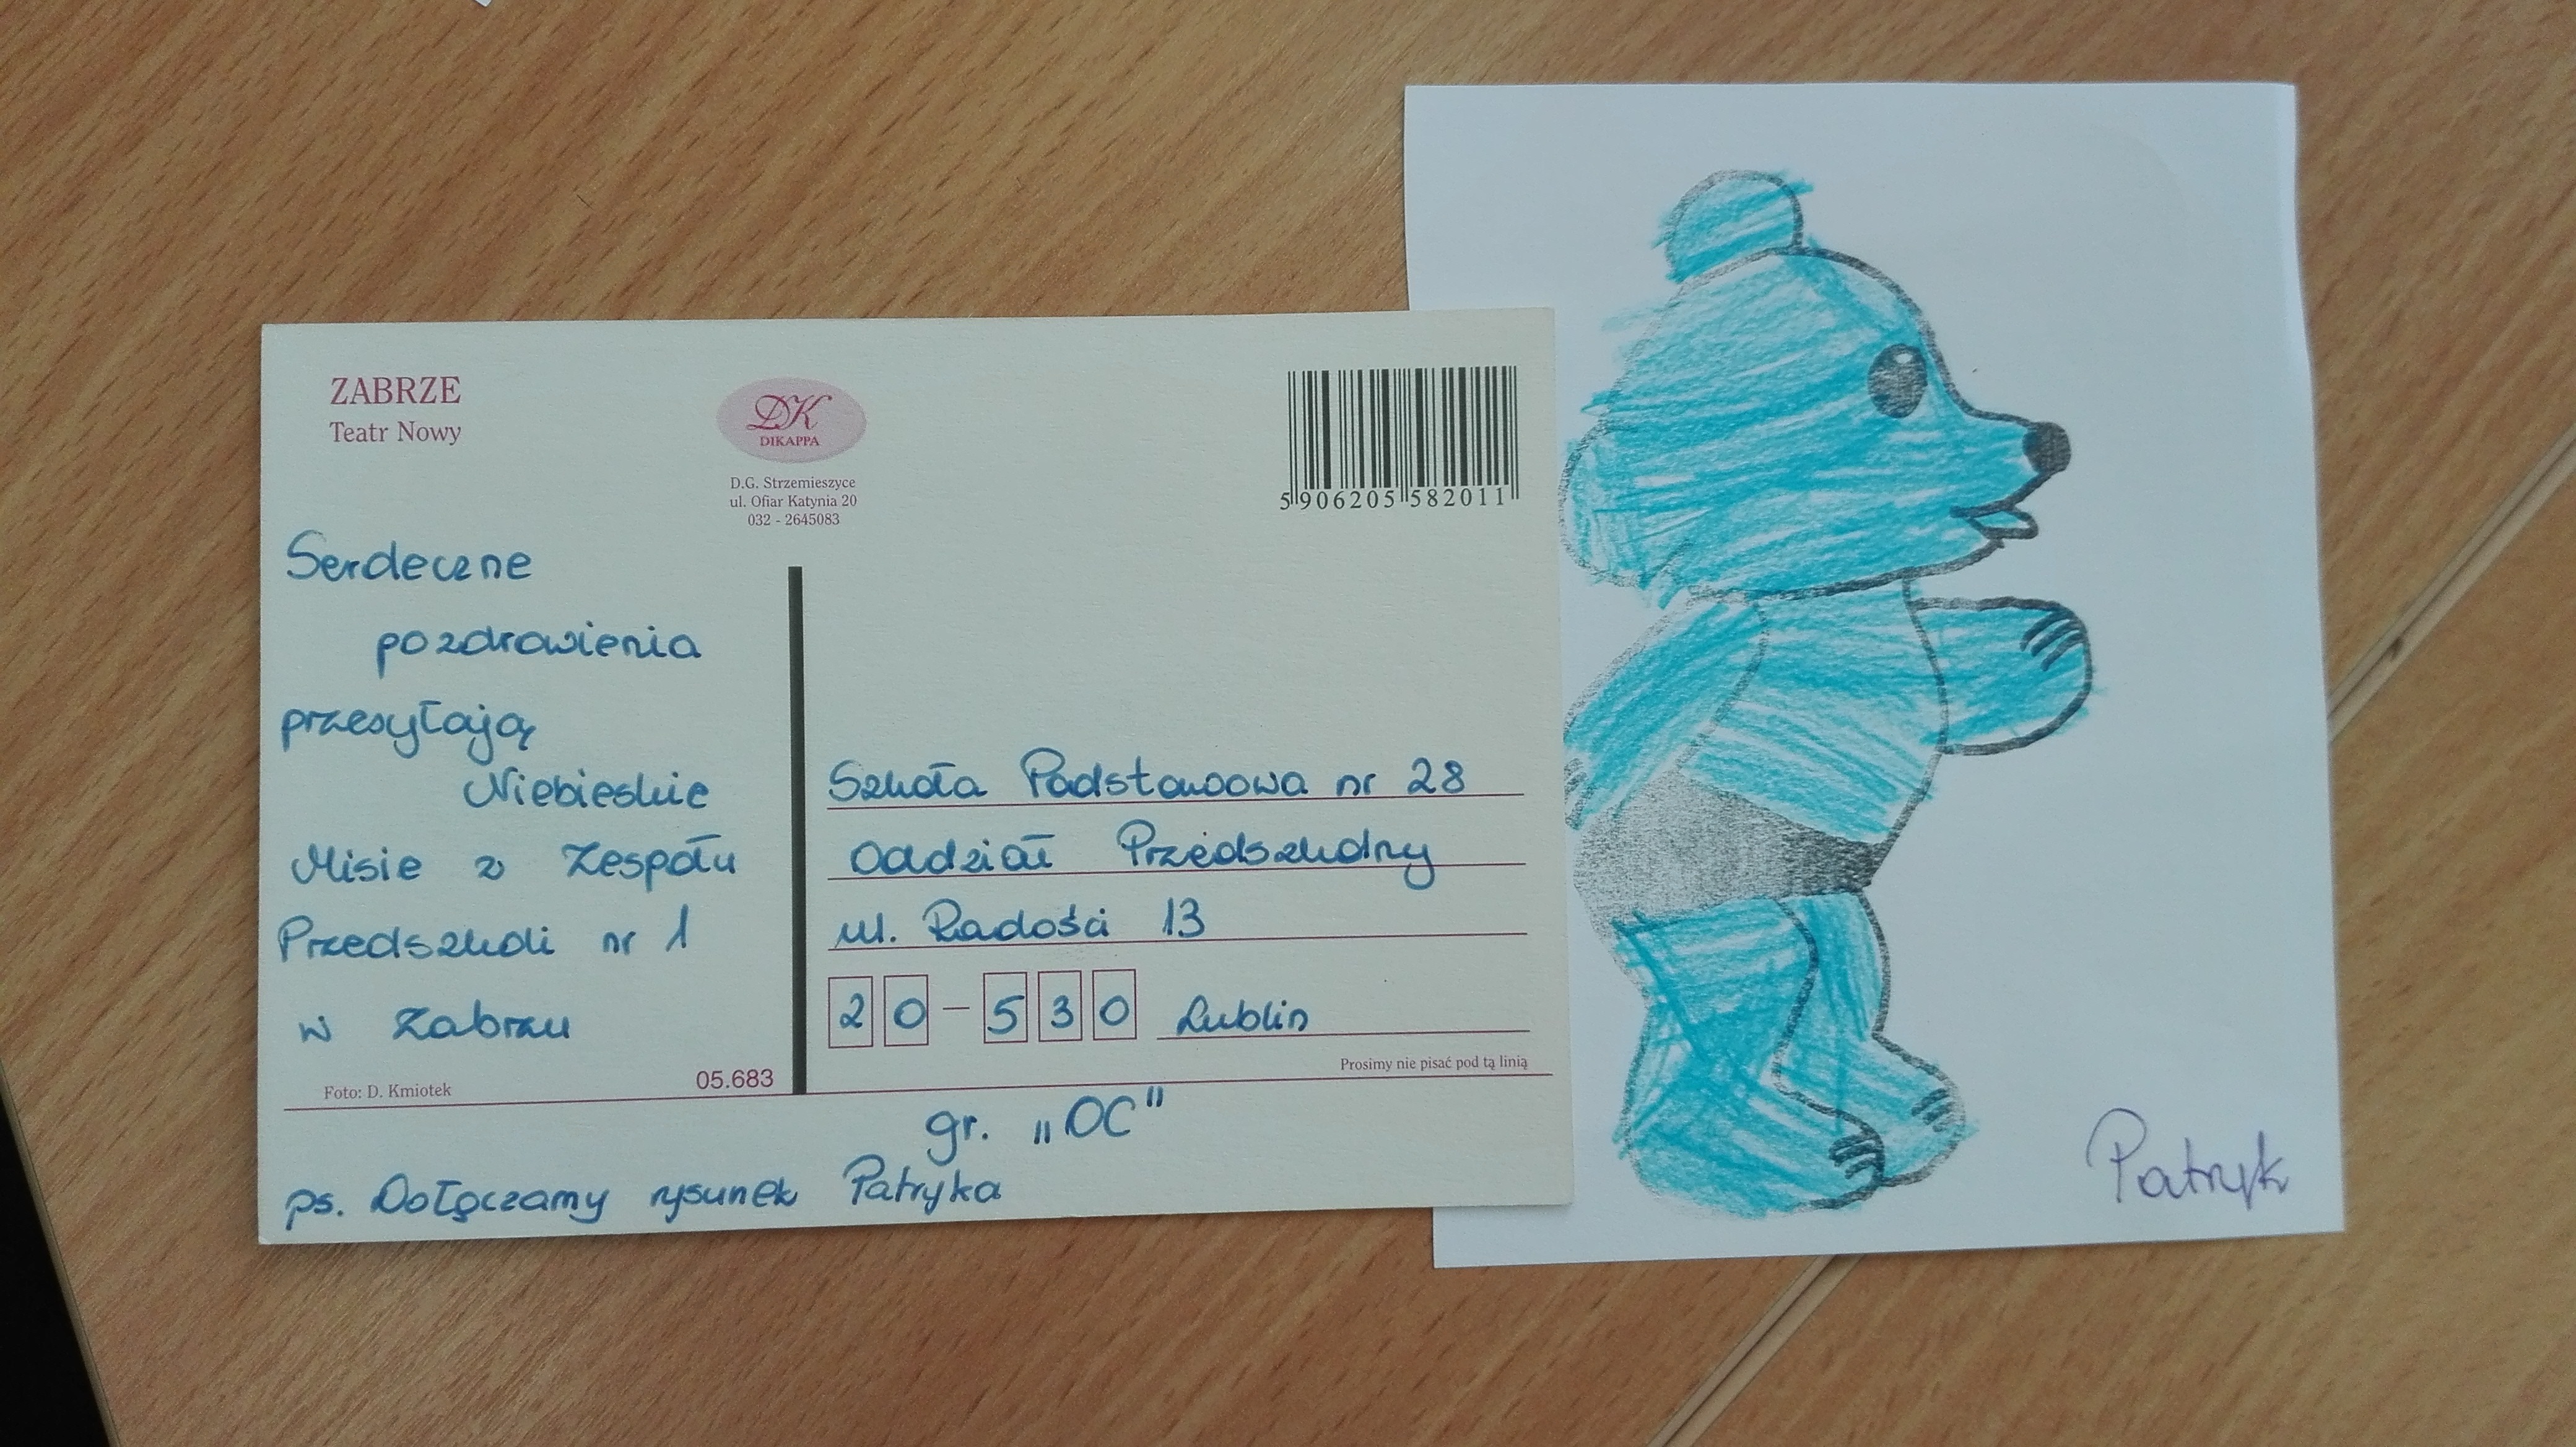 ZABRZE
Teatr Nowy
DK
DIKAPPA
D.G. Strzemieszyce
ul. Ofiar Katynia 20
032 - 2645083
5 906205 582011
Serdeczne
pozdrowienia
przesyłają
Niebieskie
Misie z Zespołu
Przedszkoli nr 1
w Zabrzu
Foto: D. Kmiotek
05.683
Szkoła Podstawowa nr 28
Oddział Przedszkolny
ul. Radości 13
20-530 Lublin
Prosimy nie pisać pod tą linią
gr. „OC"
ps. Dołączamy rysunek Patryka
Patryk